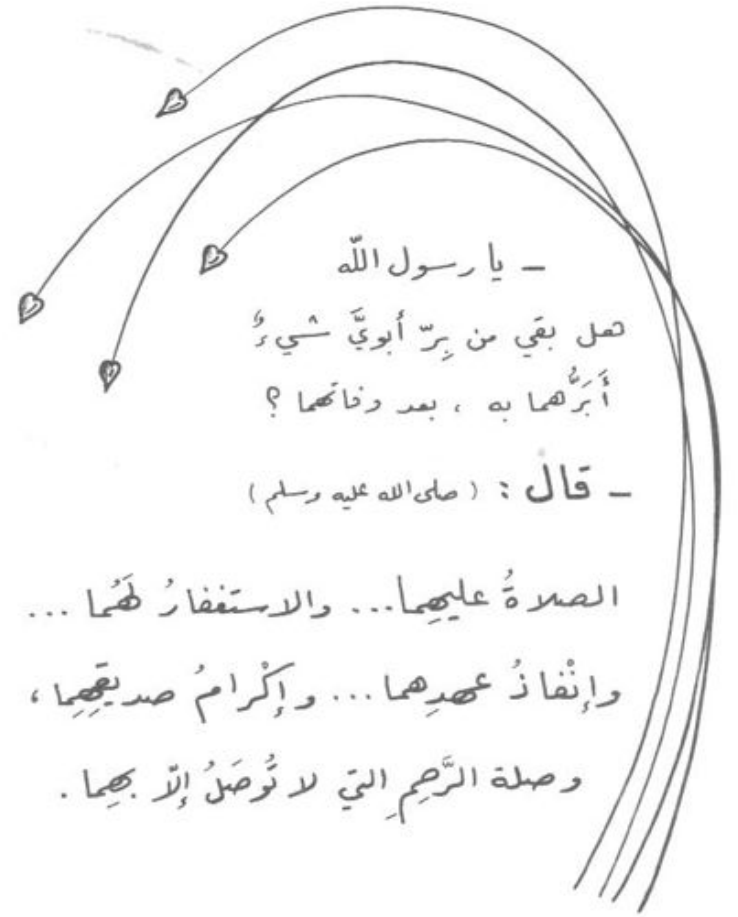 – يا رسول اللّه
هل بقي من بِرّ أبويَّ شيءٌ
أَبَرُّهما به ، بعد وفاتهما ؟
– قال : ( صلى الله عليه وسلم )
الصلاةُ عليهِما... والاستغفارُ لهُما ...
وإنْفاذُ عهدِهما ... وإكْرامُ صديقِهِما ،
وصلة الرَّحِمِ التي لا تُوصَلُ إلّا بهِما .